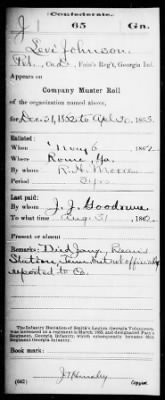 Confederate.
J 65 Ga.
Levi Johnson
Pvt., Co. D., Fain's Reg't, Georgia Inf.
Appears on
Company Muster Roll
of the organization named above,
for Dec. 31, 1862 to Apl 30, 1863.
Enlisted:
When May 6, 1862
Where Rome, Ga.
By whom R. H. Moore
Period 3 yrs
Last paid:
By whom J. J. Goodrum
To what time Aug. 31, 1862
Present or absent
Remarks: Died Jany.
Station, Tenn. not officially
reported to Co.
The Infantry Battalion of Smith's Legion, Georgia Volunteers,
was increased to a regiment in March, 1863, and designated Fain's
Regiment, Georgia Infantry, which subsequently became the 65th
Regiment Georgia Infantry.
Book mark:
(642) Copyist.